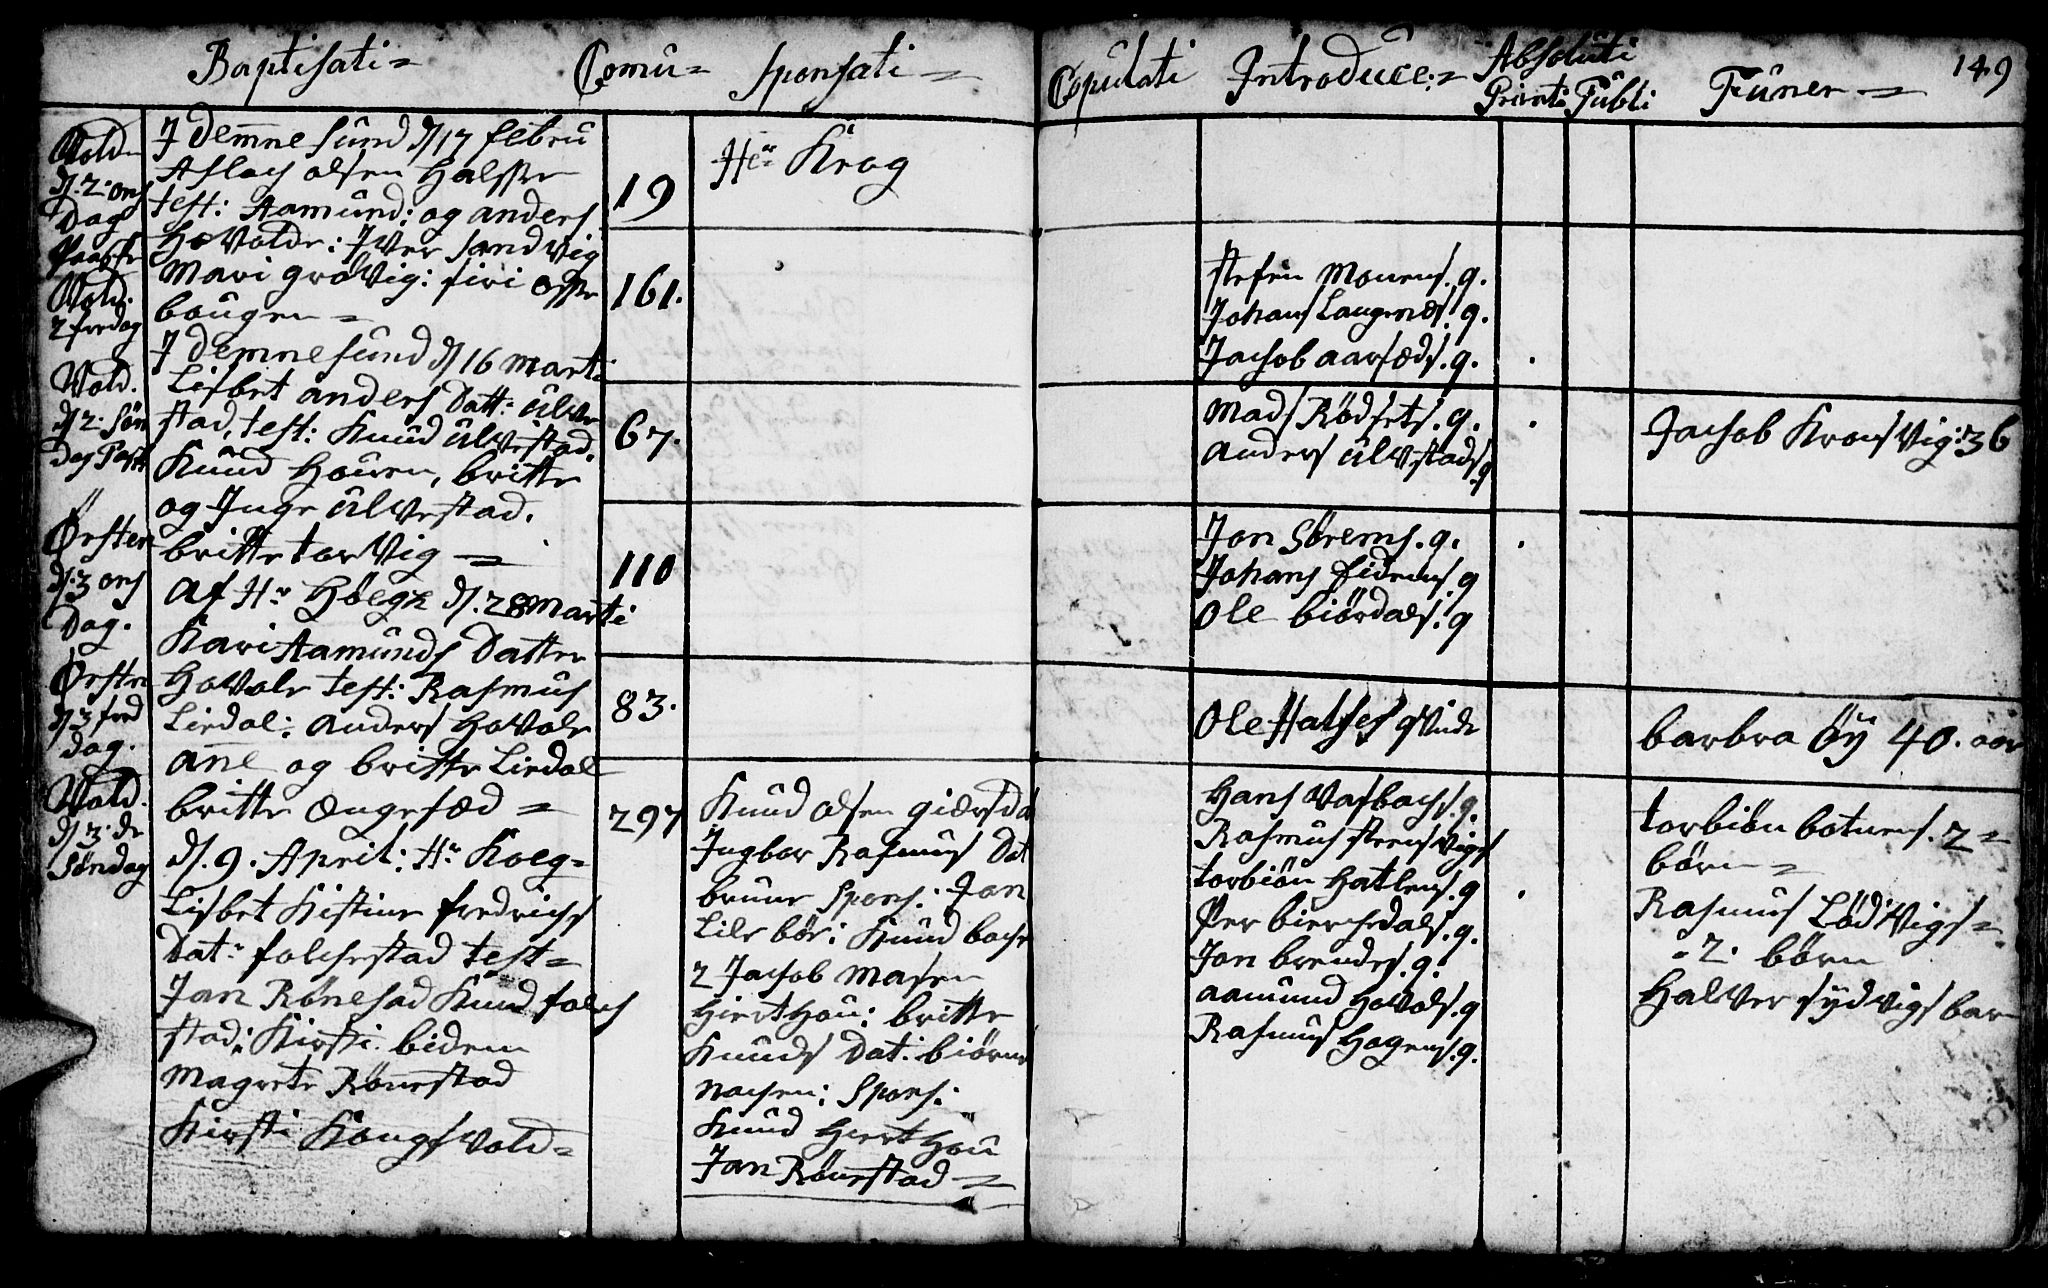 Baptisati =
Comu =
Sponsati =
Copulati
Introduce: =
Absoluti
Privati Publi
Funer =
149
Vold.
d. 2. ons
Dag
Paaske
Vold.
2 fredag
Vold.
d. 2. Søn
dag Post
Ørsten
d. 3 ons
Dag.
Ørsten
d. 3 fred
dag.
Vold.
d. 3. de
Søndag
J demne sund d 17 febru
Aslach olsen Halsse
test: Aamund: og anders
Hovolde: Jver sandvig
Mari grøvig: siri osse
bougen =
J demne sund d 16 Marti
Lisbet anders Datt: ulve
stad, test: Knud ulvestad.
Knud Houen, britte
og Inge ulvestad.
britte torvig =
af Hr Høegh d. 28 Marti
Kari Aamunds Datter
Hovole test: Rasmus
Liedal: anders Hovole
ane og britte Liedal
britte ængesæd =
d. 9. April: Hr Koeg =
Lisbet Kistine fredrichs
Dat: folchestad test =
Jan Rønesad Knud folch
stad: Kirsti bidem
Magrete Rønestad
Kirsti Kongsvold =
19
161.
67.
110
83.
297
Her Krog
Knud olsen giersda
Ingbor Rasmus Dat
brune Spons: Jon
Lile bør: Knud bache
2 Jacob Masen
Hierthou: britte
Knuds Dat: biørne
nachen: Spons:
Knud Hierthou
Jan Rønestad =
stefen Mouens. q.
Johans Langenes. q.
Jachob aarsæds. q.
Mads Rødsets. q.
anders ulvstads q
Jon Sørems. q.
Johans fidems q
Ole biørdals. q
Ole Halses qvinde
Hans Vasbachs. q.
Rasmus steensvigs
torbiøn Hatlens. q
Per bierchedals. q.
Jon brendes. q.
aamund Hovols. q
Rasmus Hagens. q.
Jachob Kronsvig: 36
barbra Øy 40. aar
torbiøn botnens. 2 =
børn =
Rasmus Lødvigs =
2. børn
Halver sydvigs barn